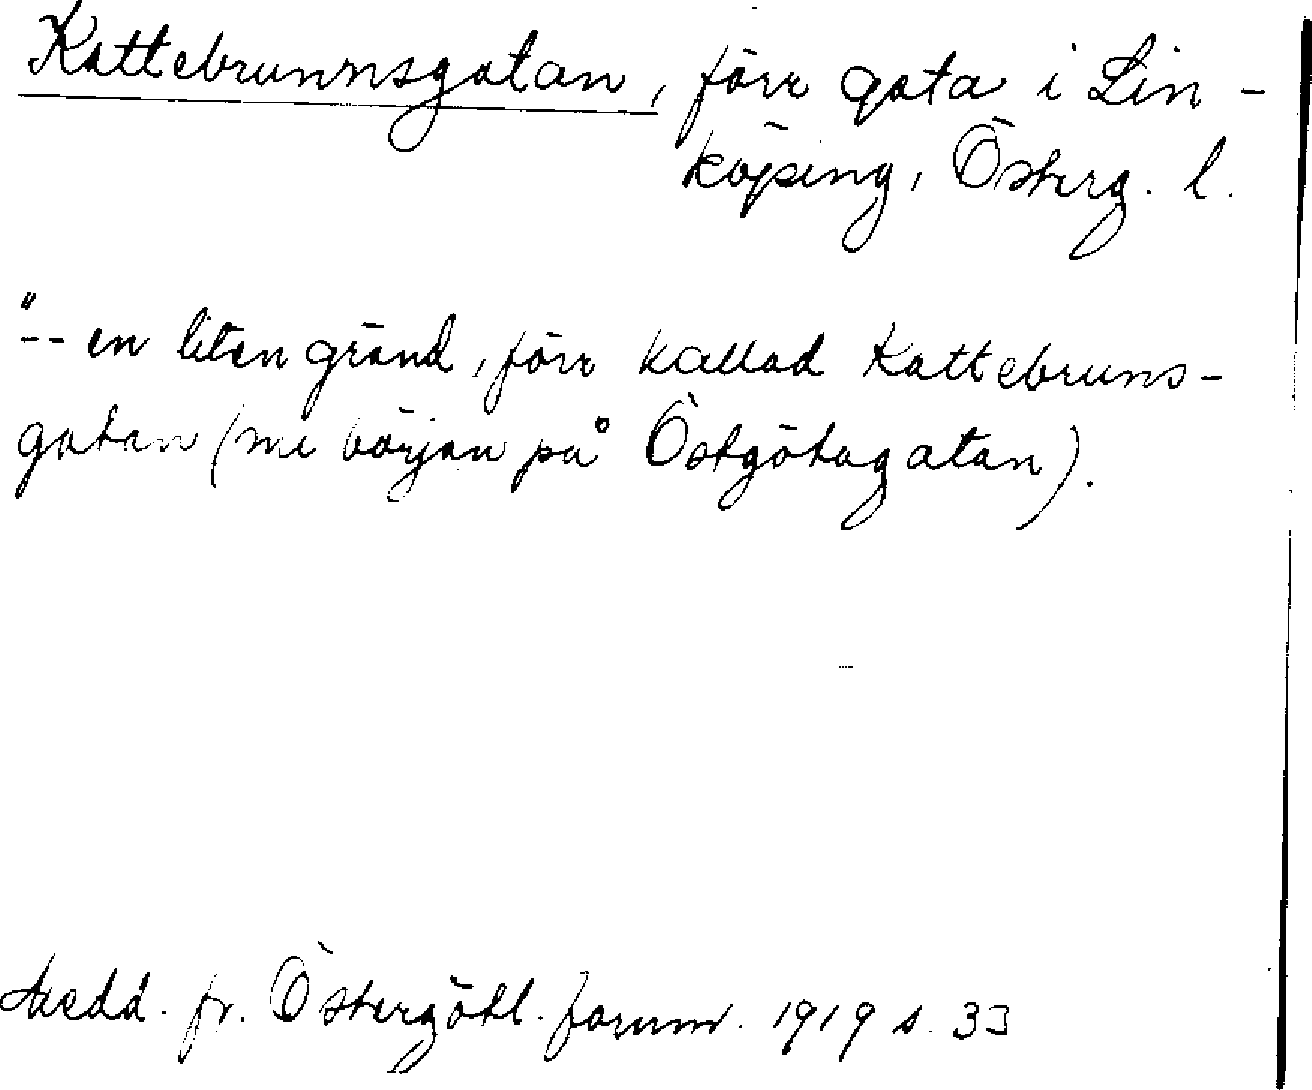 Kattebrunnsgatan, förr gata i Lin-
köping, Österg. l.
"-- en liten gränd, förr kallad Kattebruns-
gatan (nu början på Östgötagatan).
Medd. fr. Östergötl. fornm. 1919 s. 33